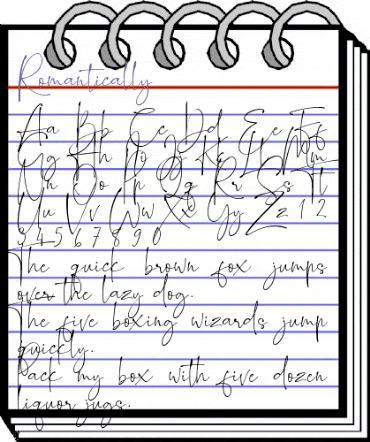 Romantically
Aa Bb Cc Dd Ee Ff
Gg Hh Ii Jj Kk Ll Mm
Nn Oo Pp Qq Rr Ss Tt
Uu Vv Ww Xx Yy Zz 1 2
3 4 5 6 7 8 9 0
The quick brown fox jumps
over the lazy dog.
The five boxing wizards jump
quickly.
Pack my box with five dozen
liquor jugs.